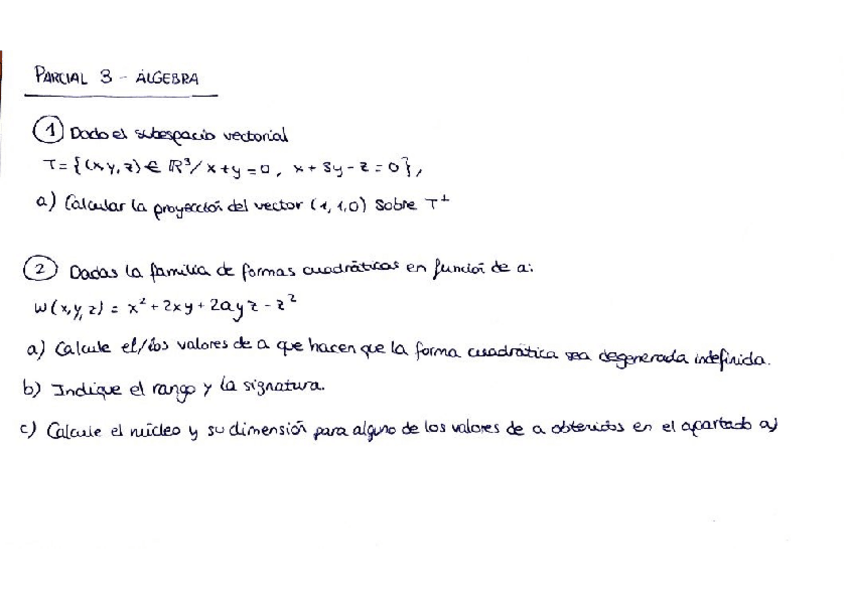 PARCIAL 3 - ÁLGEBRA
① Dado el subespacio vectorial
T = {(x, y, z) ∈ ℝ³ / x + y = 0, x + 3y - z = 0},
a) Calcular la proyección del vector (1, 1, 0) sobre T⊥
② Dadas la familia de formas cuadráticas en función de a:
W(x, y, z) = x² + 2xy + 2ayz - z²
a) Calcule el/los valores de a que hacen que la forma cuadrática sea degenerada indefinida.
b) Indique el rango y la signatura.
c) Calcule el núcleo y su dimensión para alguno de los valores de a obtenidos en el apartado a)